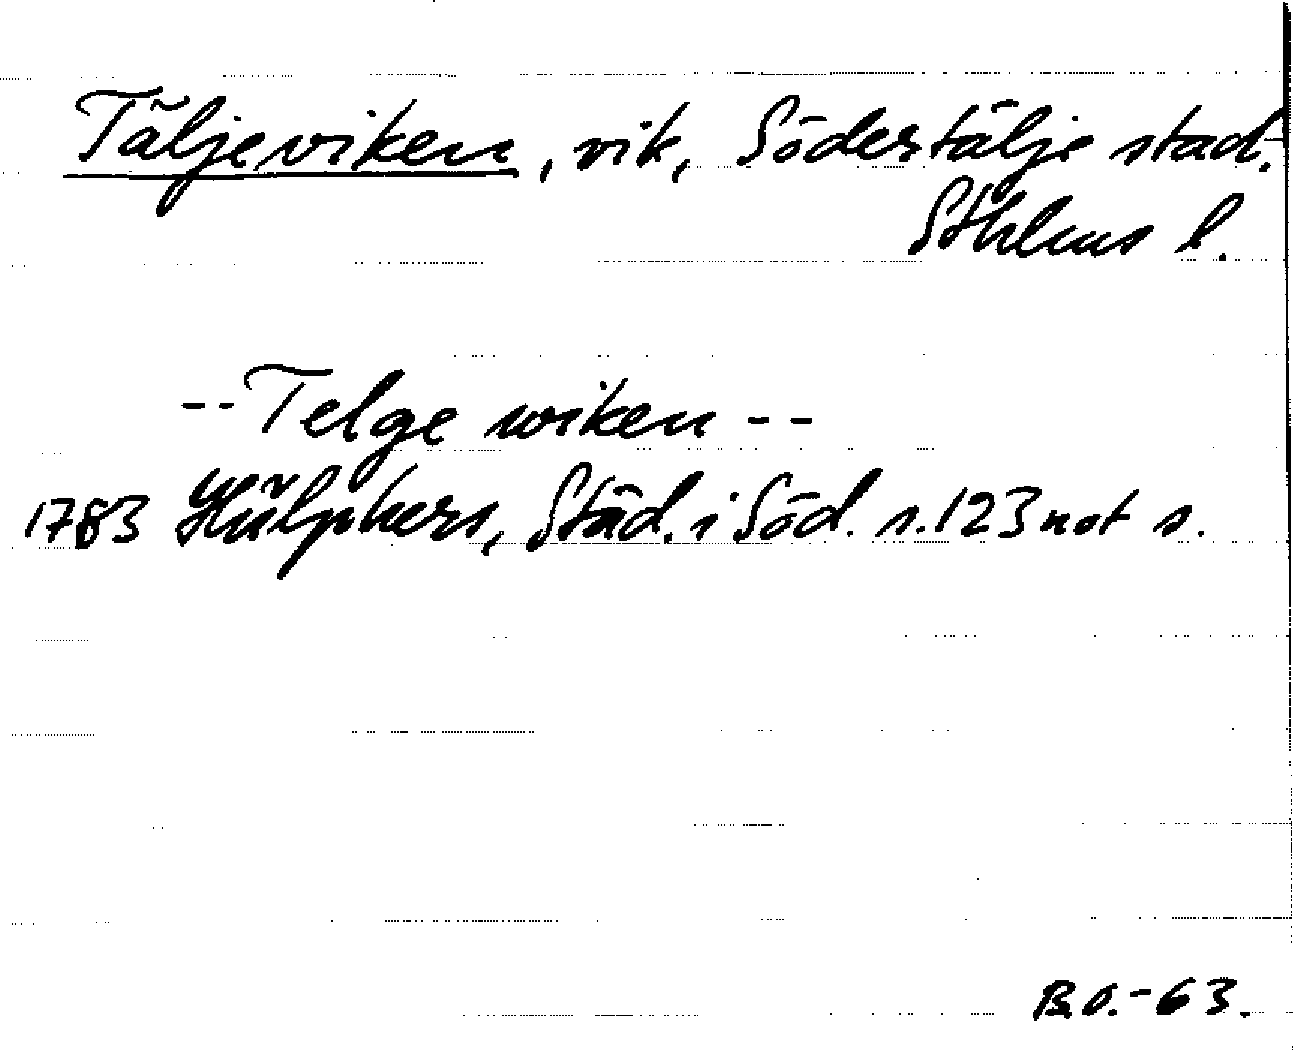 Täljeviken, vik, Södertälje stad.
Sthlms l.
-- Telge wiken --
1783 Hülphers, Städ. i Söd. s. 123 not s.
B.O.-63.